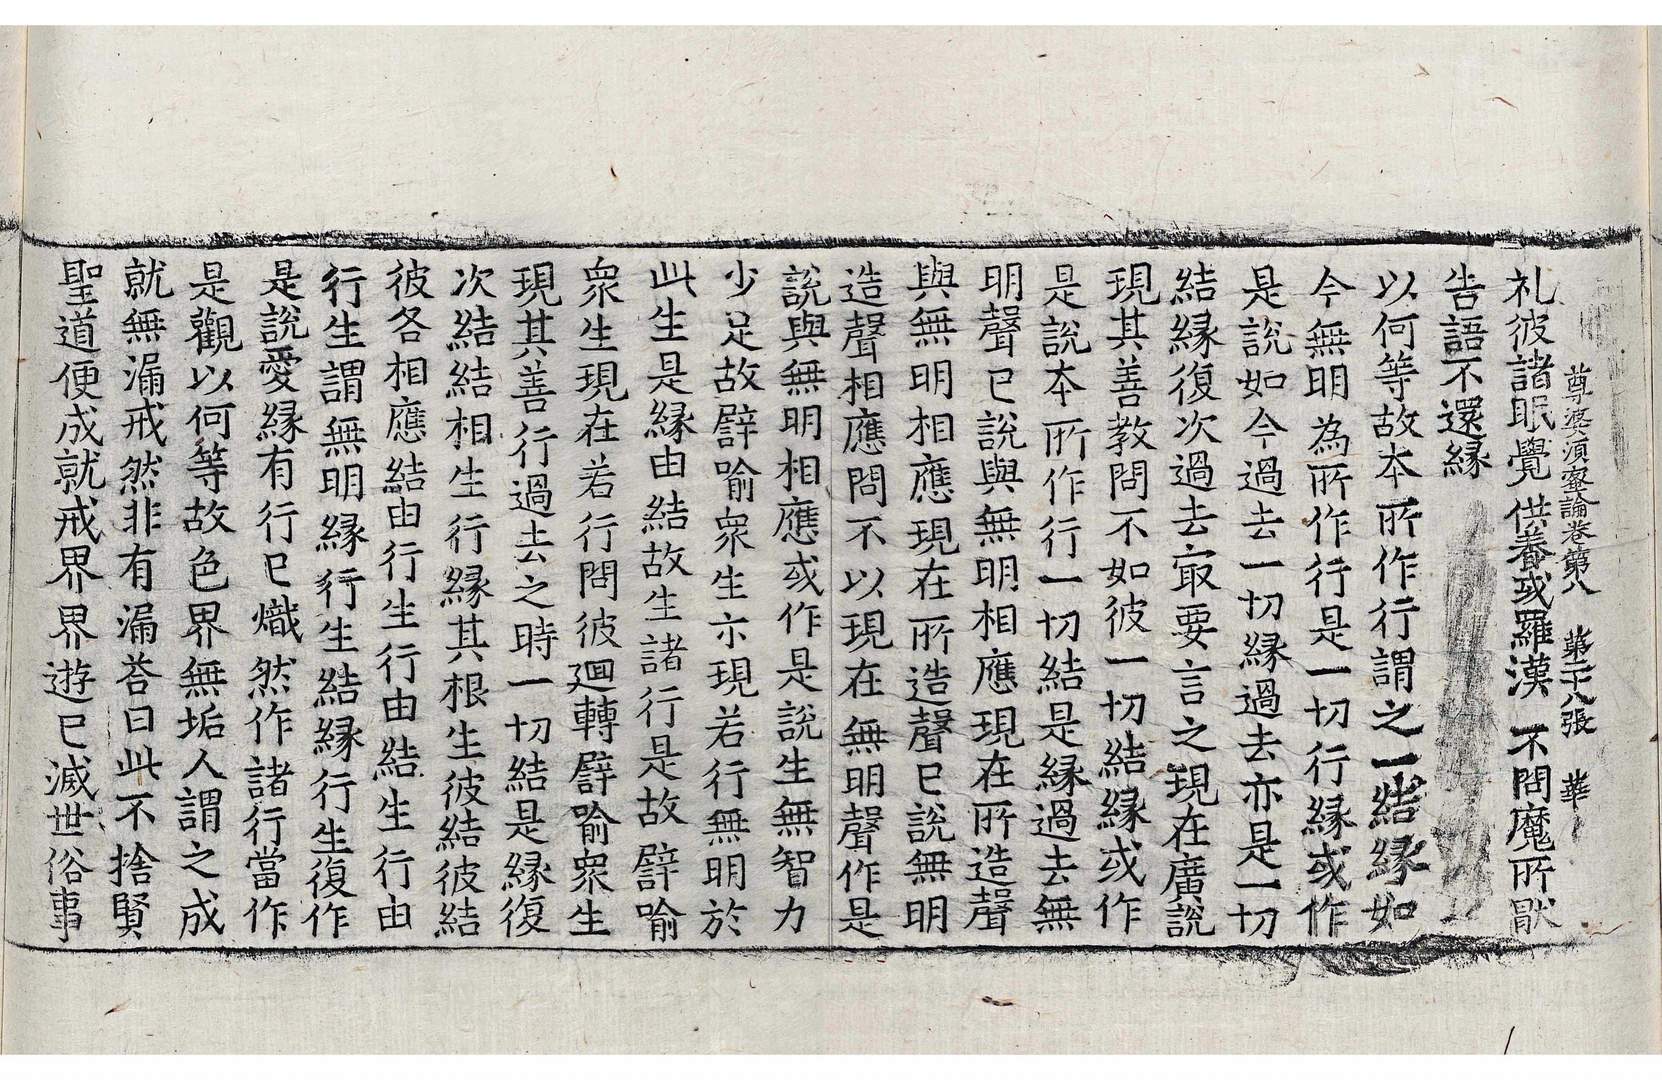 尊婆須蜜論卷第八　第二十八張　華
礼彼諸眠覺供養或羅漢　不問魔所猒
告語不還縁
以何等故本所作行謂之一結縁如
今無明為所作行是一切行縁或作
是說如今過去一切縁過去亦是一切
結縁復次過去㝡要言之現在廣說
現其善教問不如彼一切結縁或作
是說本所作行一切結是縁過去無
明聲已說與無明相應現在所造聲
與無明相應現在所造聲已說無明
造聲相應問不以現在無明聲作是
說與無明相應或作是說生無智力
少足故譬喻衆生亦現若行無明於
此生是縁由結故生諸行是故譬喻
衆生現在若行問彼廻轉譬喻衆生
現其善行過去之時一切結是縁復
次結結相生行縁其根生彼結彼結
彼各相應結由行生行由結生行由
行生謂無明縁行生結縁行生復作
是說愛縁有行已熾然作諸行當作
是觀以何等故色界無垢人謂之成
就無漏戒然非有漏荅曰此不捨賢
聖道便成就戒界界遊已滅世俗事